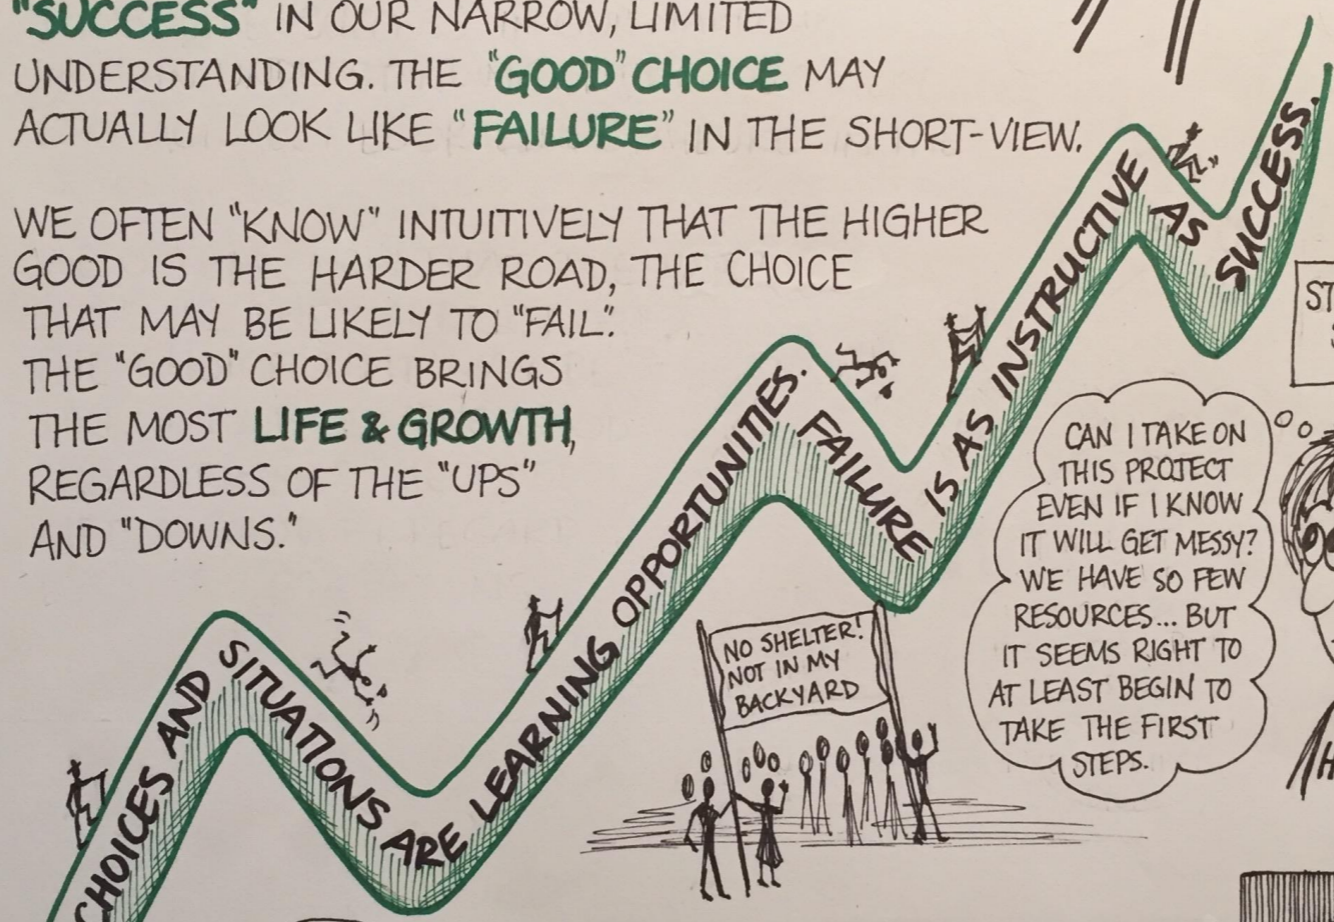 "SUCCESS" IN OUR NARROW, LIMITED
UNDERSTANDING. THE "GOOD" CHOICE MAY
ACTUALLY LOOK LIKE "FAILURE" IN THE SHORT-VIEW.
WE OFTEN "KNOW" INTUITIVELY THAT THE HIGHER
GOOD IS THE HARDER ROAD, THE CHOICE
THAT MAY BE LIKELY TO "FAIL."
THE "GOOD" CHOICE BRINGS
THE MOST LIFE & GROWTH,
REGARDLESS OF THE "UPS"
AND "DOWNS."
CHOICES AND SITUATIONS ARE LEARNING OPPORTUNITIES. FAILURE IS AS INSTRUCTIVE AS SUCCESS.
NO SHELTER!
NOT IN MY
BACKYARD
CAN I TAKE ON
THIS PROJECT
EVEN IF I KNOW
IT WILL GET MESSY?
WE HAVE SO FEW
RESOURCES... BUT
IT SEEMS RIGHT TO
AT LEAST BEGIN TO
TAKE THE FIRST
STEPS.
ST